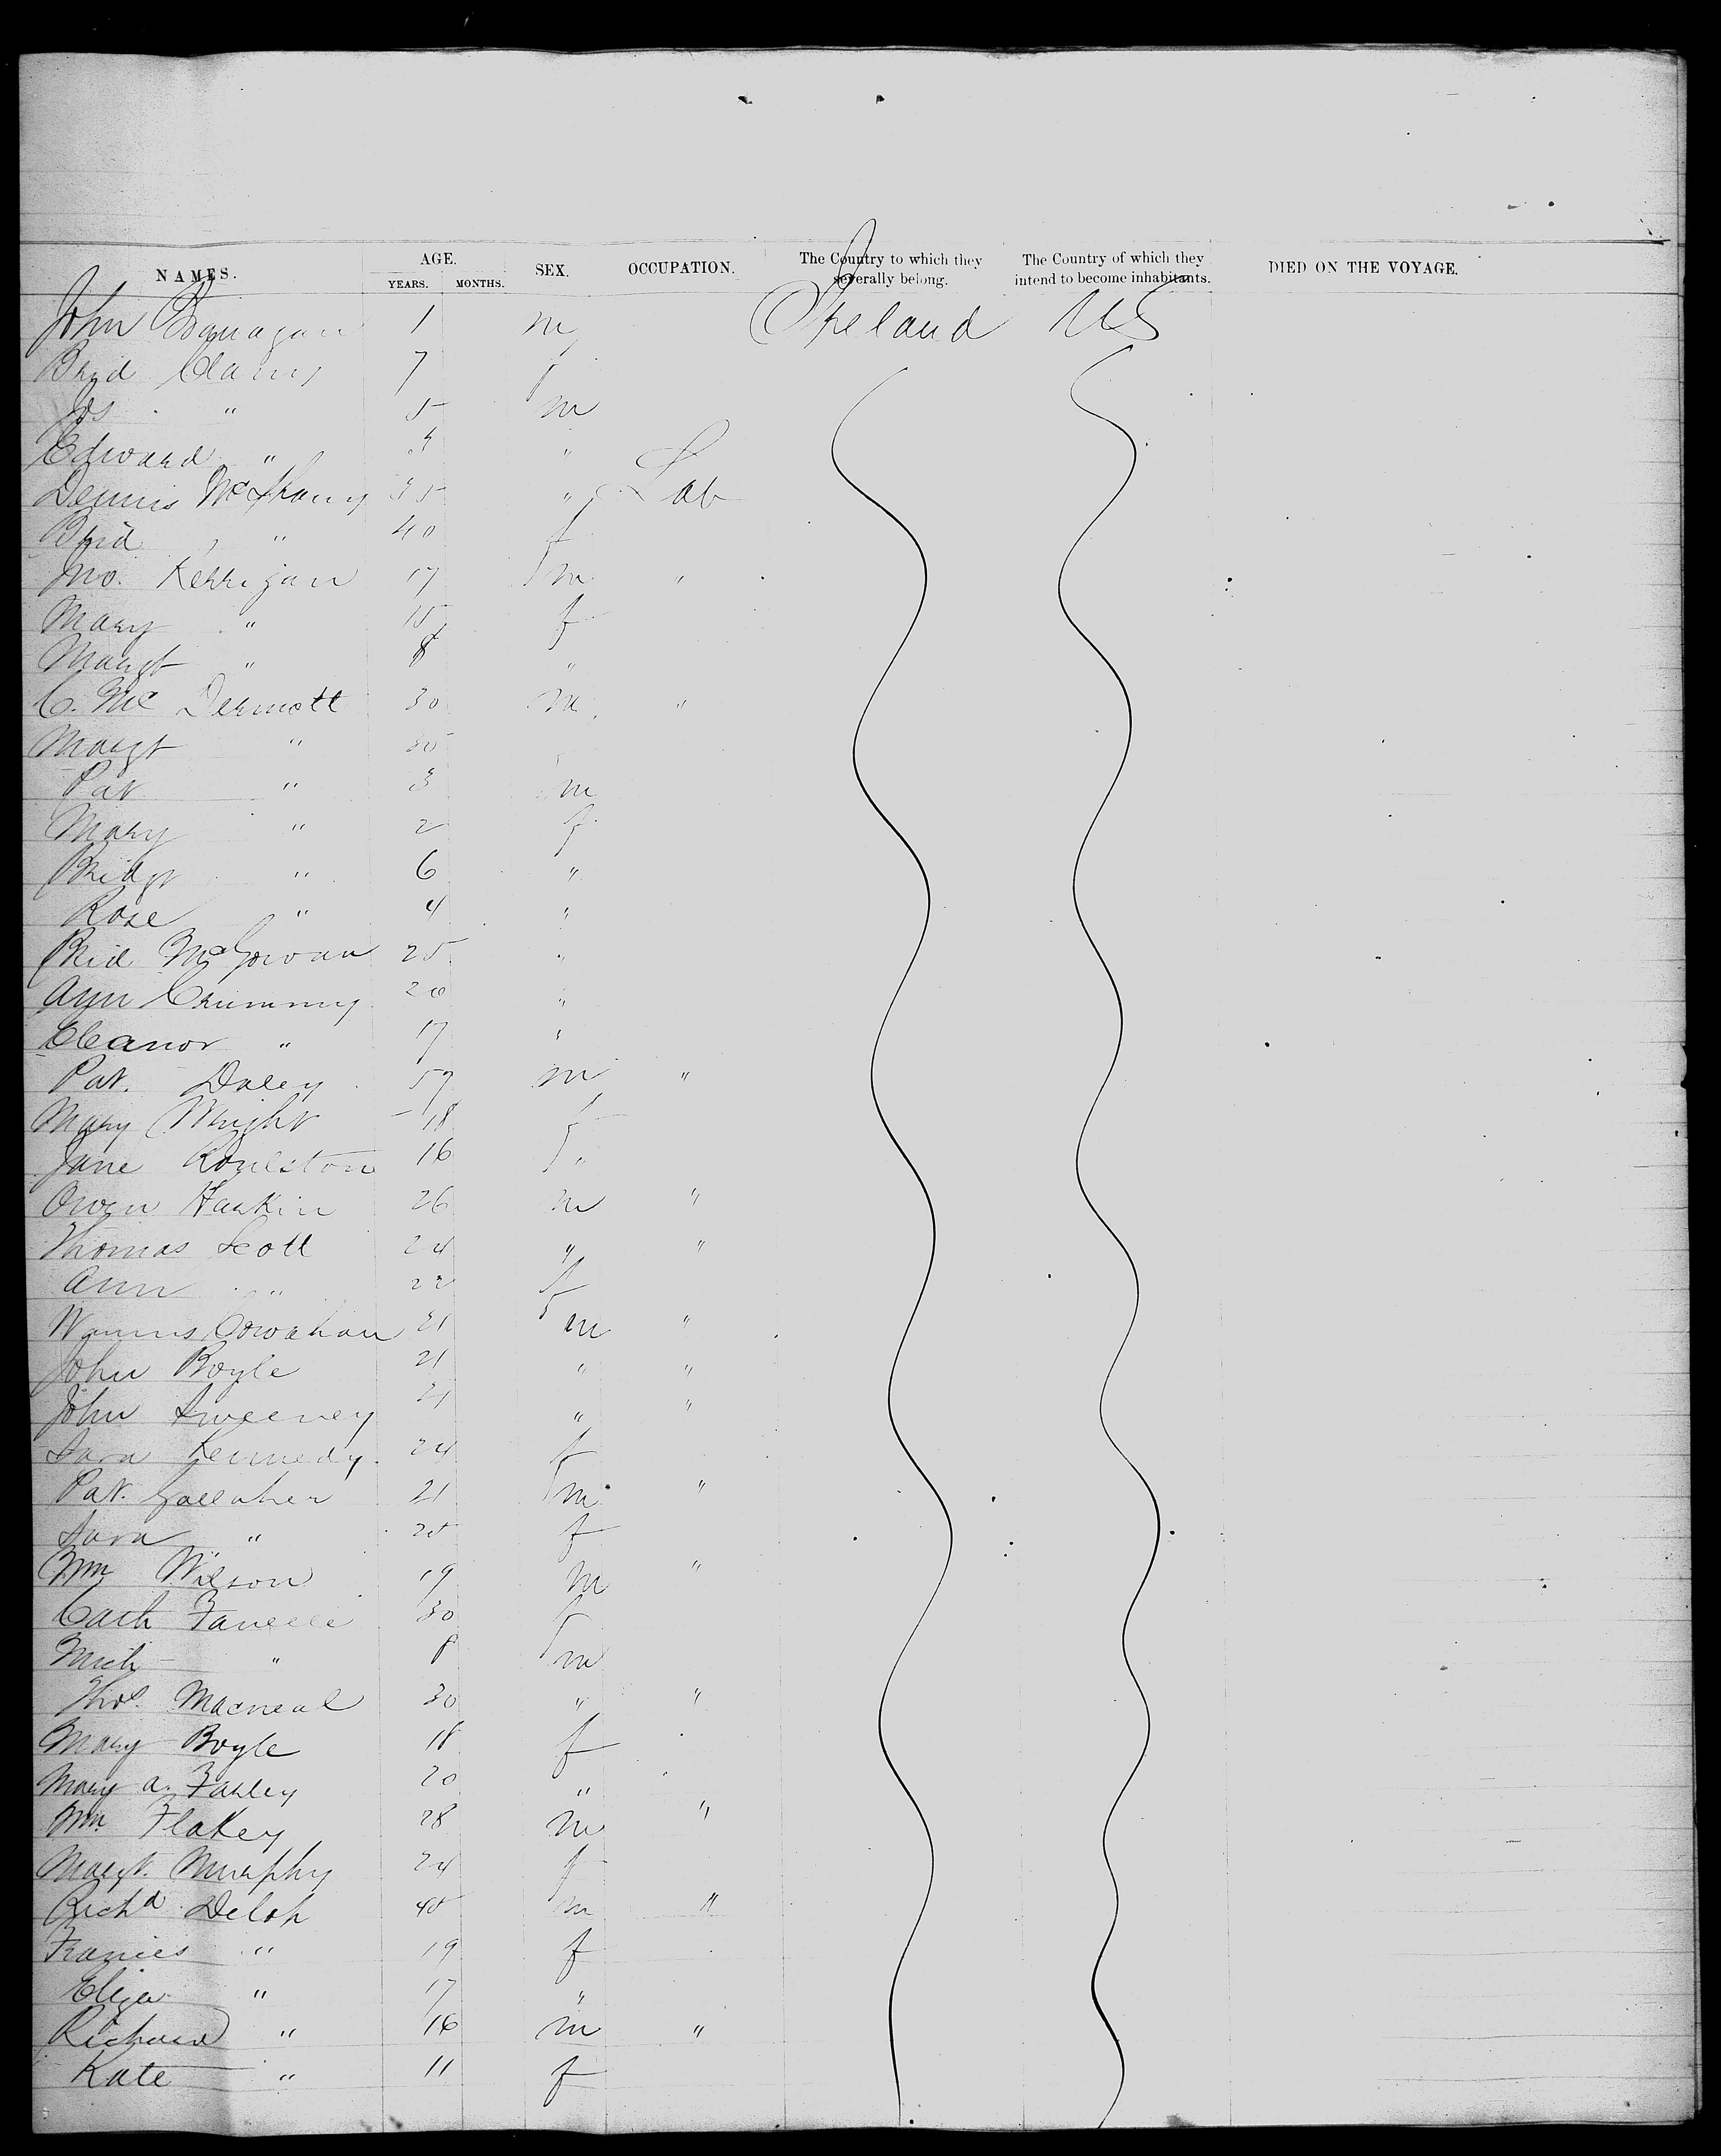 NAMES. AGE. SEX. OCCUPATION. The Country to which they severally belong. The Country of which they intend to become inhabitants. DIED ON THE VOYAGE.
YEARS. MONTHS.
John 1 m Ireland US
Brid 7 f
Jos " 5 m
Edward " 3 "
Dennis 35 " Lab
Brid " 40 f
Jno. Kerrigan 17 m "
Mary " 15 f
Margt " 8 "
C. Mc Dermott 30 m "
Margt "
Pat " 3 m
Mary " 2 f
Bridgt " 6 "
Rose " 4 "
Brid McGowan 25 "
Ann Crummy 20 "
Eleanor " 17 "
Pat. Daley 57 m "
Mary Wright 18 f
Jane Roulston 16 "
Owen Harkin 26 m "
Thomas Scott 24 " "
Ann " 22 f
21 m "
John Boyle 21 " "
John Sweeney 21 " "
Sara Kennedy 24 f
Pat. Gallaher 21 m "
Sara " 20 f
Wm Wilson 19 m "
Cath 30 f
Mich " 8 m
Thos. Macneal 30 " "
Mary Boyle 18 f
Mary A. Farley 20 "
Wm. Flakey 28 m "
Margt. Murphy 24 f
Richd Deloh 40 m "
Francies " 19 f
Eliza " 17 "
Richard " 16 m "
Kate " 11 f